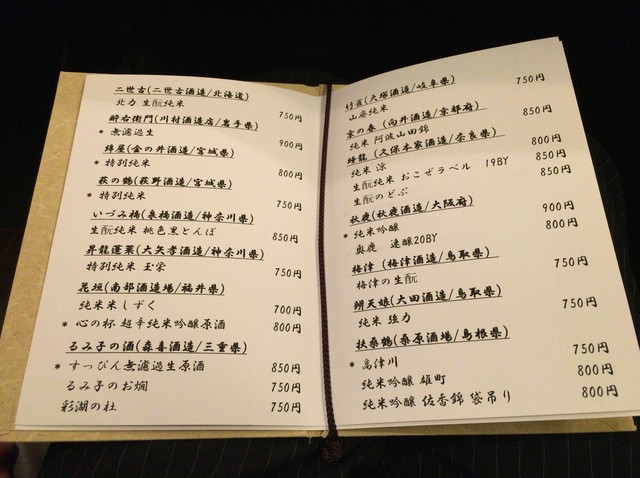 二世古(二世古酒造/北海道)
北力 生酛純米 750円
酔右衛門(川村酒造店/岩手県)
* 無濾過生 900円
綿屋(金の井酒造/宮城県)
* 特別純米 800円
萩の鶴(萩野酒造/宮城県)
* 特別純米 750円
いづみ橋(泉橋酒造/神奈川県)
生酛純米 桃色黒とんぼ 850円
昇龍蓬莱(大矢孝酒造/神奈川県)
特別純米 玉栄 750円
花垣(南部酒造場/福井県)
純米米しずく 700円
* 心の杯 超辛純米吟醸原酒 800円
るみ子の酒(森喜酒造/三重県)
* すっぴん無濾過生原酒 850円
るみ子のお燗 750円
彩湖の杜 750円
竹雀(大塚酒造/岐阜県)
山廃純米 750円
京の春(向井酒造/京都府)
純米 阿波山田錦 850円
睡龍(久保本家酒造/奈良県)
純米 涼 800円
生酛純米 おこぜラベル 19BY 850円
生酛のどぶ 850円
秋鹿(秋鹿酒造/大阪府)
* 純米吟醸 900円
奥鹿 速醸20BY 800円
梅津(梅津酒造/鳥取県)
梅津の生酛 750円
辨天娘(太田酒造/鳥取県)
純米 強力 750円
扶桑鶴(桑原酒場/島根県)
* 高津川 750円
純米吟醸 雄町 800円
純米吟醸 佐香錦 袋吊り 800円